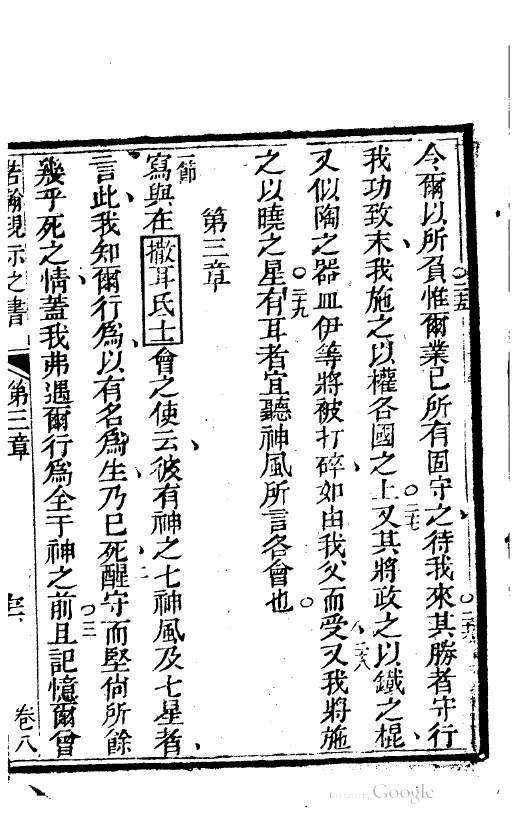 今爾以所負惟爾業已所有固守之待我來其勝者守行
二五
二六
我功致末我施之以權各國之上又其將政之以鐵之棍
二七
又似陶之器皿伊等將被打碎如由我父而受又我將施
二八
之以曉之星有耳者宜聽神風所言各會也
二九
第三章
一節
寫與在撒耳氐士會之使云彼有神之七神風及七星者
言此我知爾行爲以有名爲生乃已死醒守而堅倘所餘
二
三
幾乎死之情蓋我弗遇爾行爲全于神之前且記憶爾曾
若翰現示之書
第三章
卷八
Digitized by Google